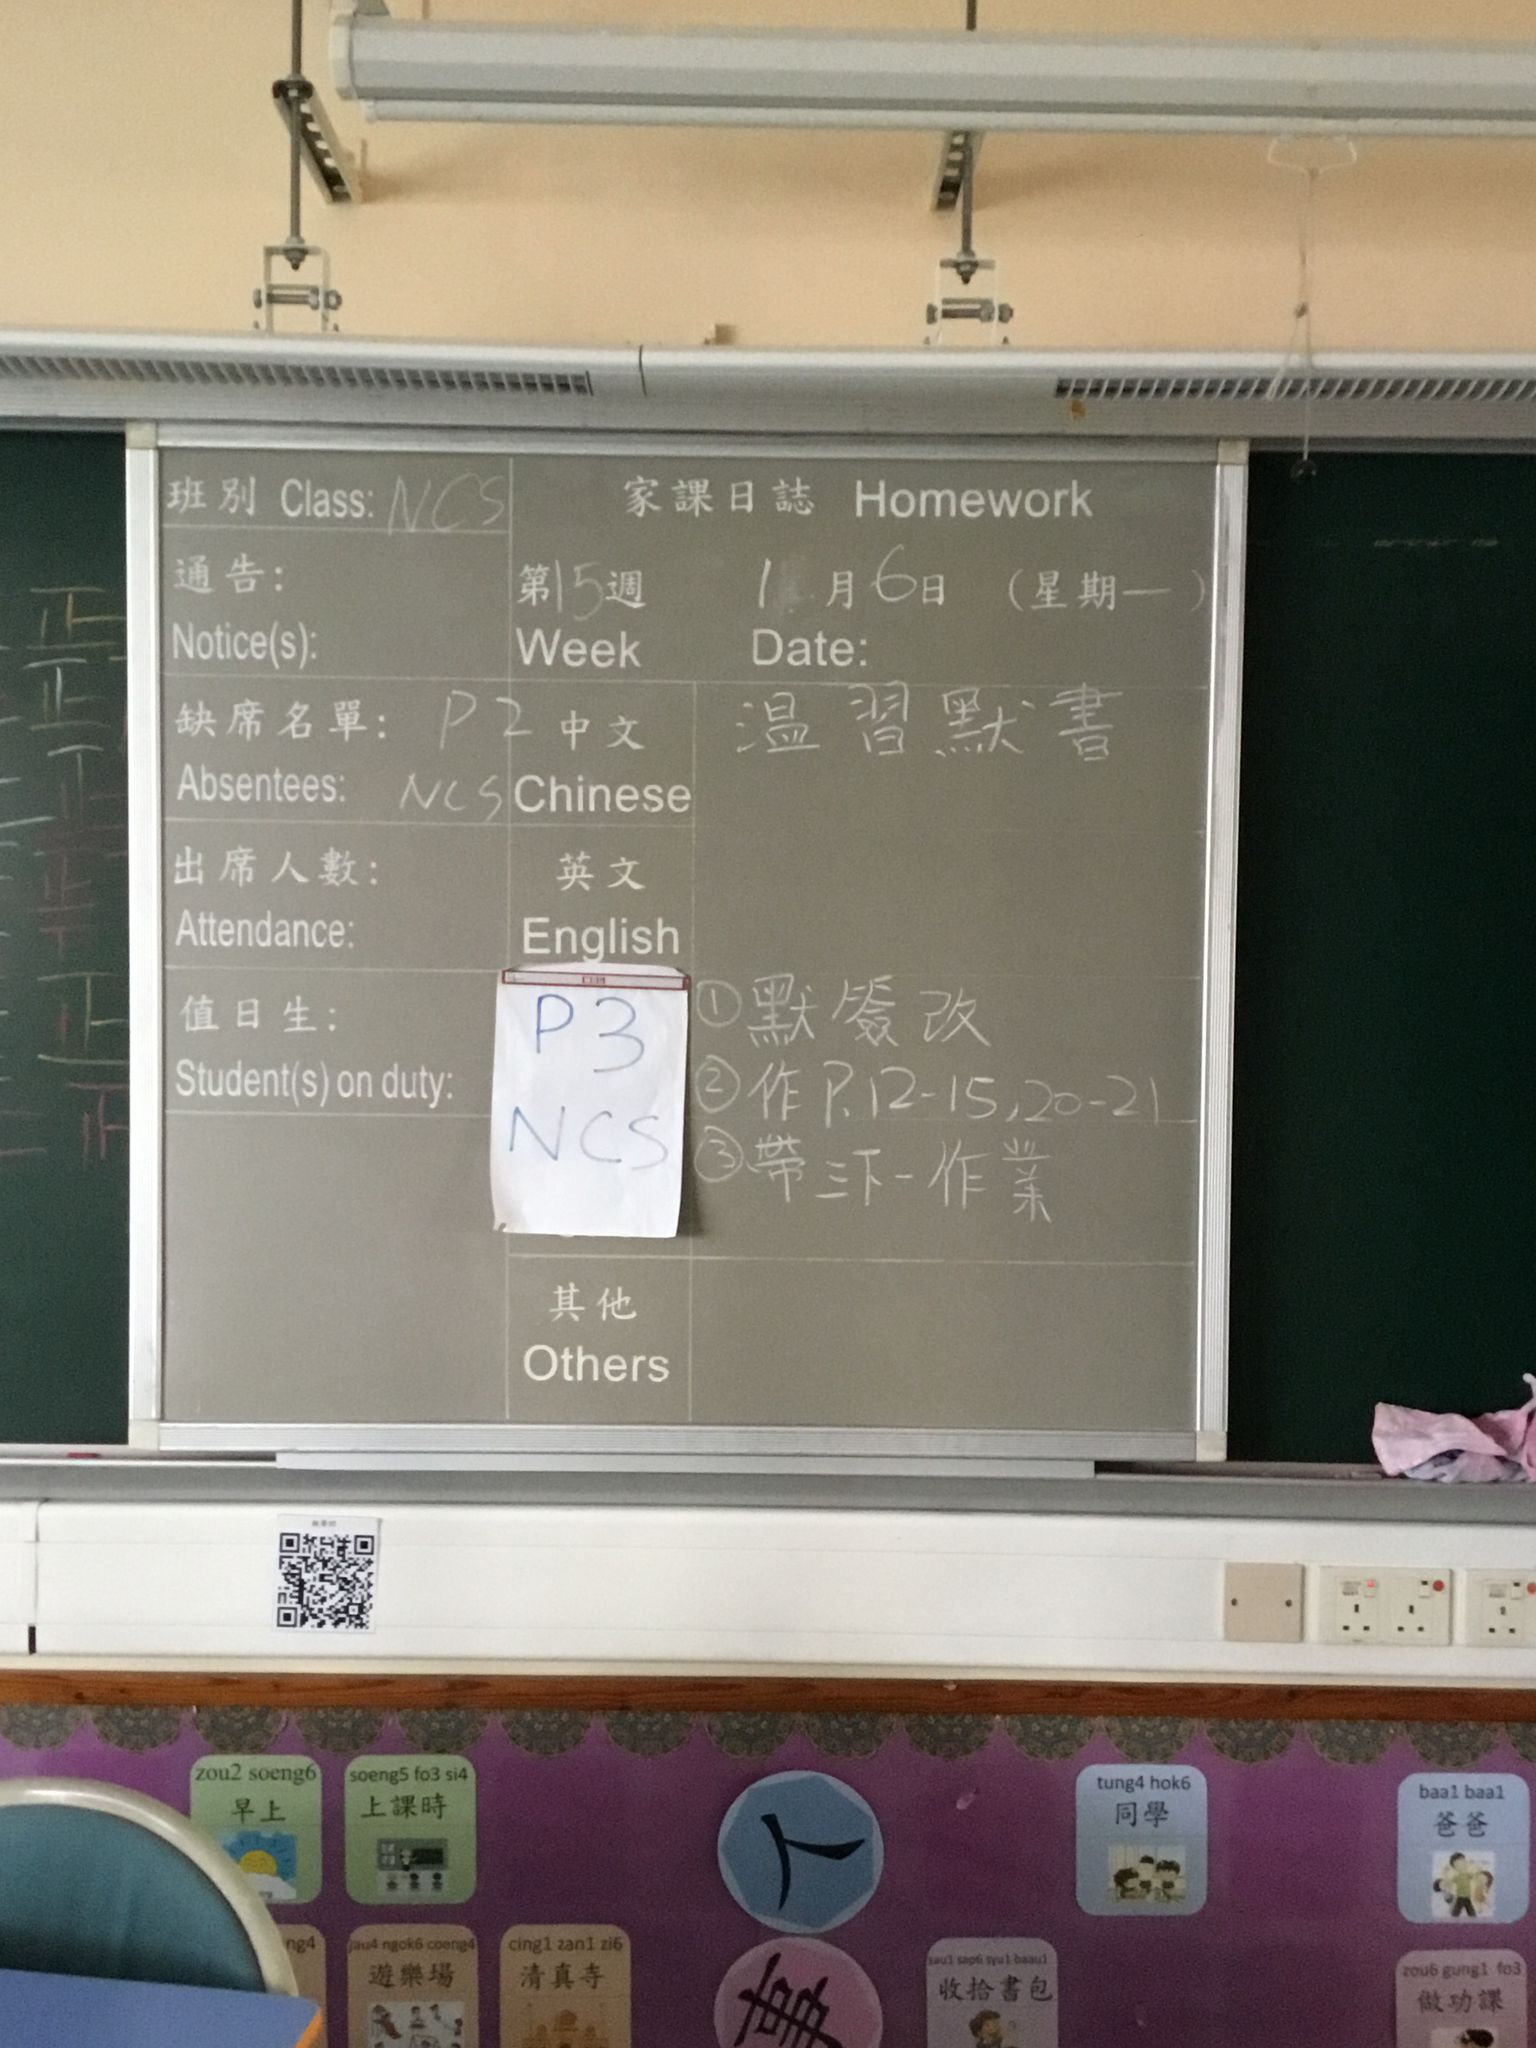 班別 Class: NCS
家課日誌 Homework
通告:
Notice(s):
第15週 1月6日 (星期一)
Week Date:
缺席名單: P2
Absentees: NCS
中文 溫習默書
Chinese
出席人數:
Attendance:
英文
English
值日生:
Student(s) on duty:
P3
NCS
①默簽改
②作P.12-15,20-21
③帶三下一作業
其他
Others
zou2 soeng6
早上
soeng5 fo3 si4
上課時
tung4 hok6
同學
baa1 baa1
爸爸
ng4
jau4 ngok6 coeng4
遊樂場
cing1 zan1 zi6
清真寺
sau1 sap6 syu1 baau1
收拾書包
zou6 gung1 fo3
做功課